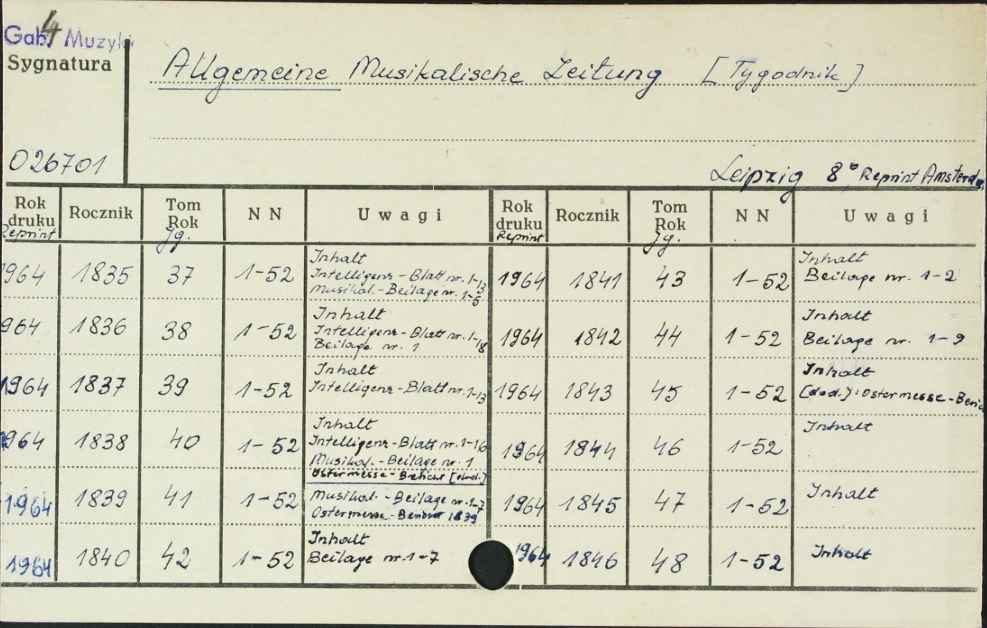 4
Gab. Muzyki
Sygnatura
Allgemeine Musikalische Zeitung [Tygodnik]
026701
Leipzig 8°, Reprint Amsterda
Rok druku Reprint Rocznik Tom Rok Jg. NN Uwagi Rok druku Reprint Rocznik Tom Rok Jg. NN Uwagi
1964 1835 37 1-52 Inhalt
Intelligenz-Blatt nr. 1-13
Musikal.-Beilage nr. 1-5
1964 1841 43 1-52 Inhalt
Beilage nr. 1-2
964 1836 38 1-52 Inhalt
Intelligenz-Blatt nr. 1-18
Beilage nr. 1
1964 1842 44 1-52 Inhalt
Beilage nr. 1-9
1964 1837 39 1-52 Inhalt
Intelligenz-Blatt nr. 1-13
1964 1843 45 1-52 Inhalt
[dod.]: Ostermesse-Beric
1964 1838 40 1-52 Inhalt
Intelligenz-Blatt nr. 1-16
Musikal.-Beilage nr. 1
Ostermesse-Bericht [dod.]
1964 1844 46 1-52 Inhalt
1964 1839 41 1-52 Musikal.-Beilage nr. 1-7
Ostermesse-Bericht 1839
1964 1845 47 1-52 Inhalt
1964 1840 42 1-52 Inhalt
Beilage nr. 1-7
1964 1846 48 1-52 Inhalt